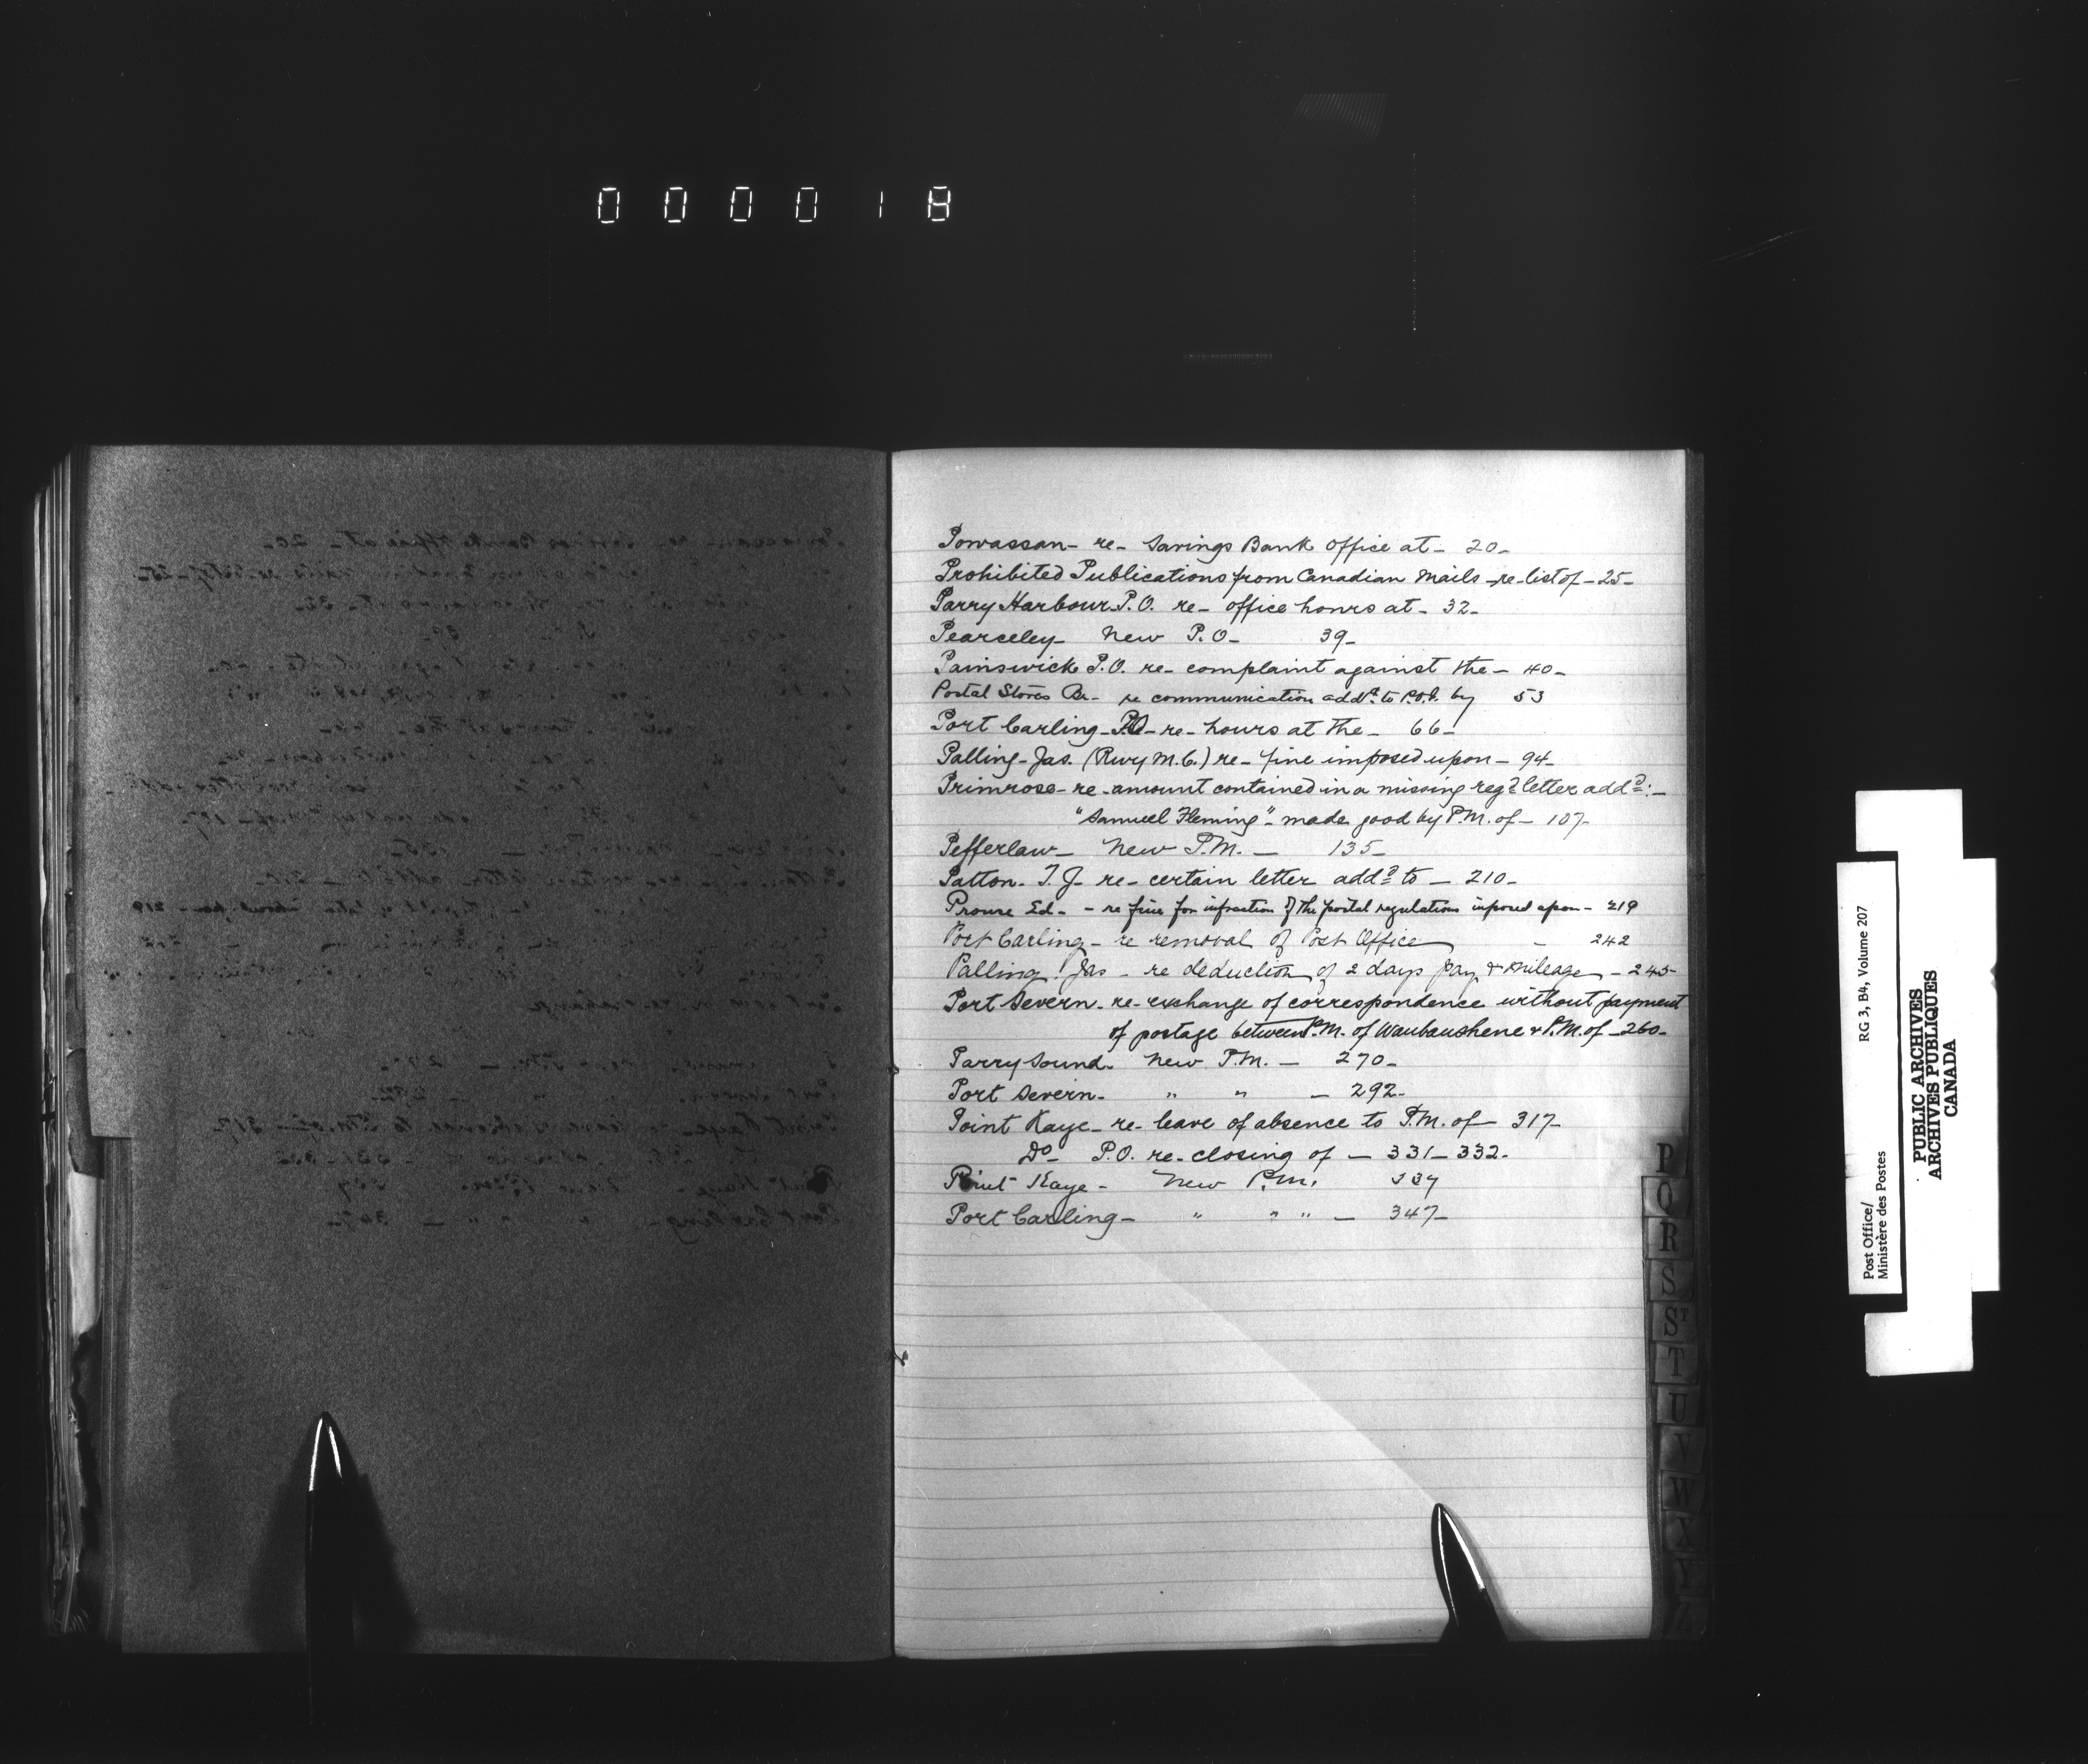 000018
Powassan - re - Savings Bank Office at - 20 -
Prohibited Publications from Canadian Mails - re - list of - 25 -
Parry Harbour P.O. re - office hours at - 32 -
Pearceley - New P.O - 39 -
Painswick P.O. re - complaint against the - 40 -
Postal Stores Br - re communication addd to P.O.I. by 53
Port Carling - P.O - re - hours at the - 66 -
Palling - Jas. (Rwy M.C.) re - fine imposed upon - 94 -
Primrose - re - amount contained in a missing regd letter addd : -
"Samuel Fleming" - made good by P.M. of - 107 -
Pefferlaw - New P.M. - 135 -
Patton - T. J. re - certain letter addd to - 210 -
Prouse Ed - - re fine for infraction of the postal regulations imposed upon - 219
Port Carling - re removal of Post Office - 242
Palling Jas - re deduction of 2 days pay & mileage - 245 -
Port Severn - re - exchange of correspondence without payment
of postage between P.M. of Waubaushene & P.M. of - 260 -
Parry Sound - New P.M. - 270 -
Port Severn - " " - 292 -
Point Kaye - re - leave of absence to P.M. of - 317 -
Do - P.O. re - closing of - 331 - 332 -
Point Kaye - New P.M. 337
Port Carling - " " " - 347 -
P
Q
R
S
ST
T
U
V
W
X
Y
Z
Post Office/
Ministère des Postes
RG 3, B4, Volume 207
PUBLIC ARCHIVES
ARCHIVES PUBLIQUES
CANADA